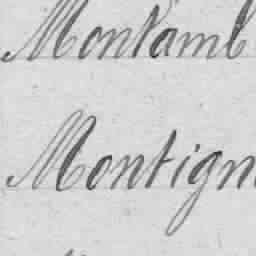 Montamb
Montign